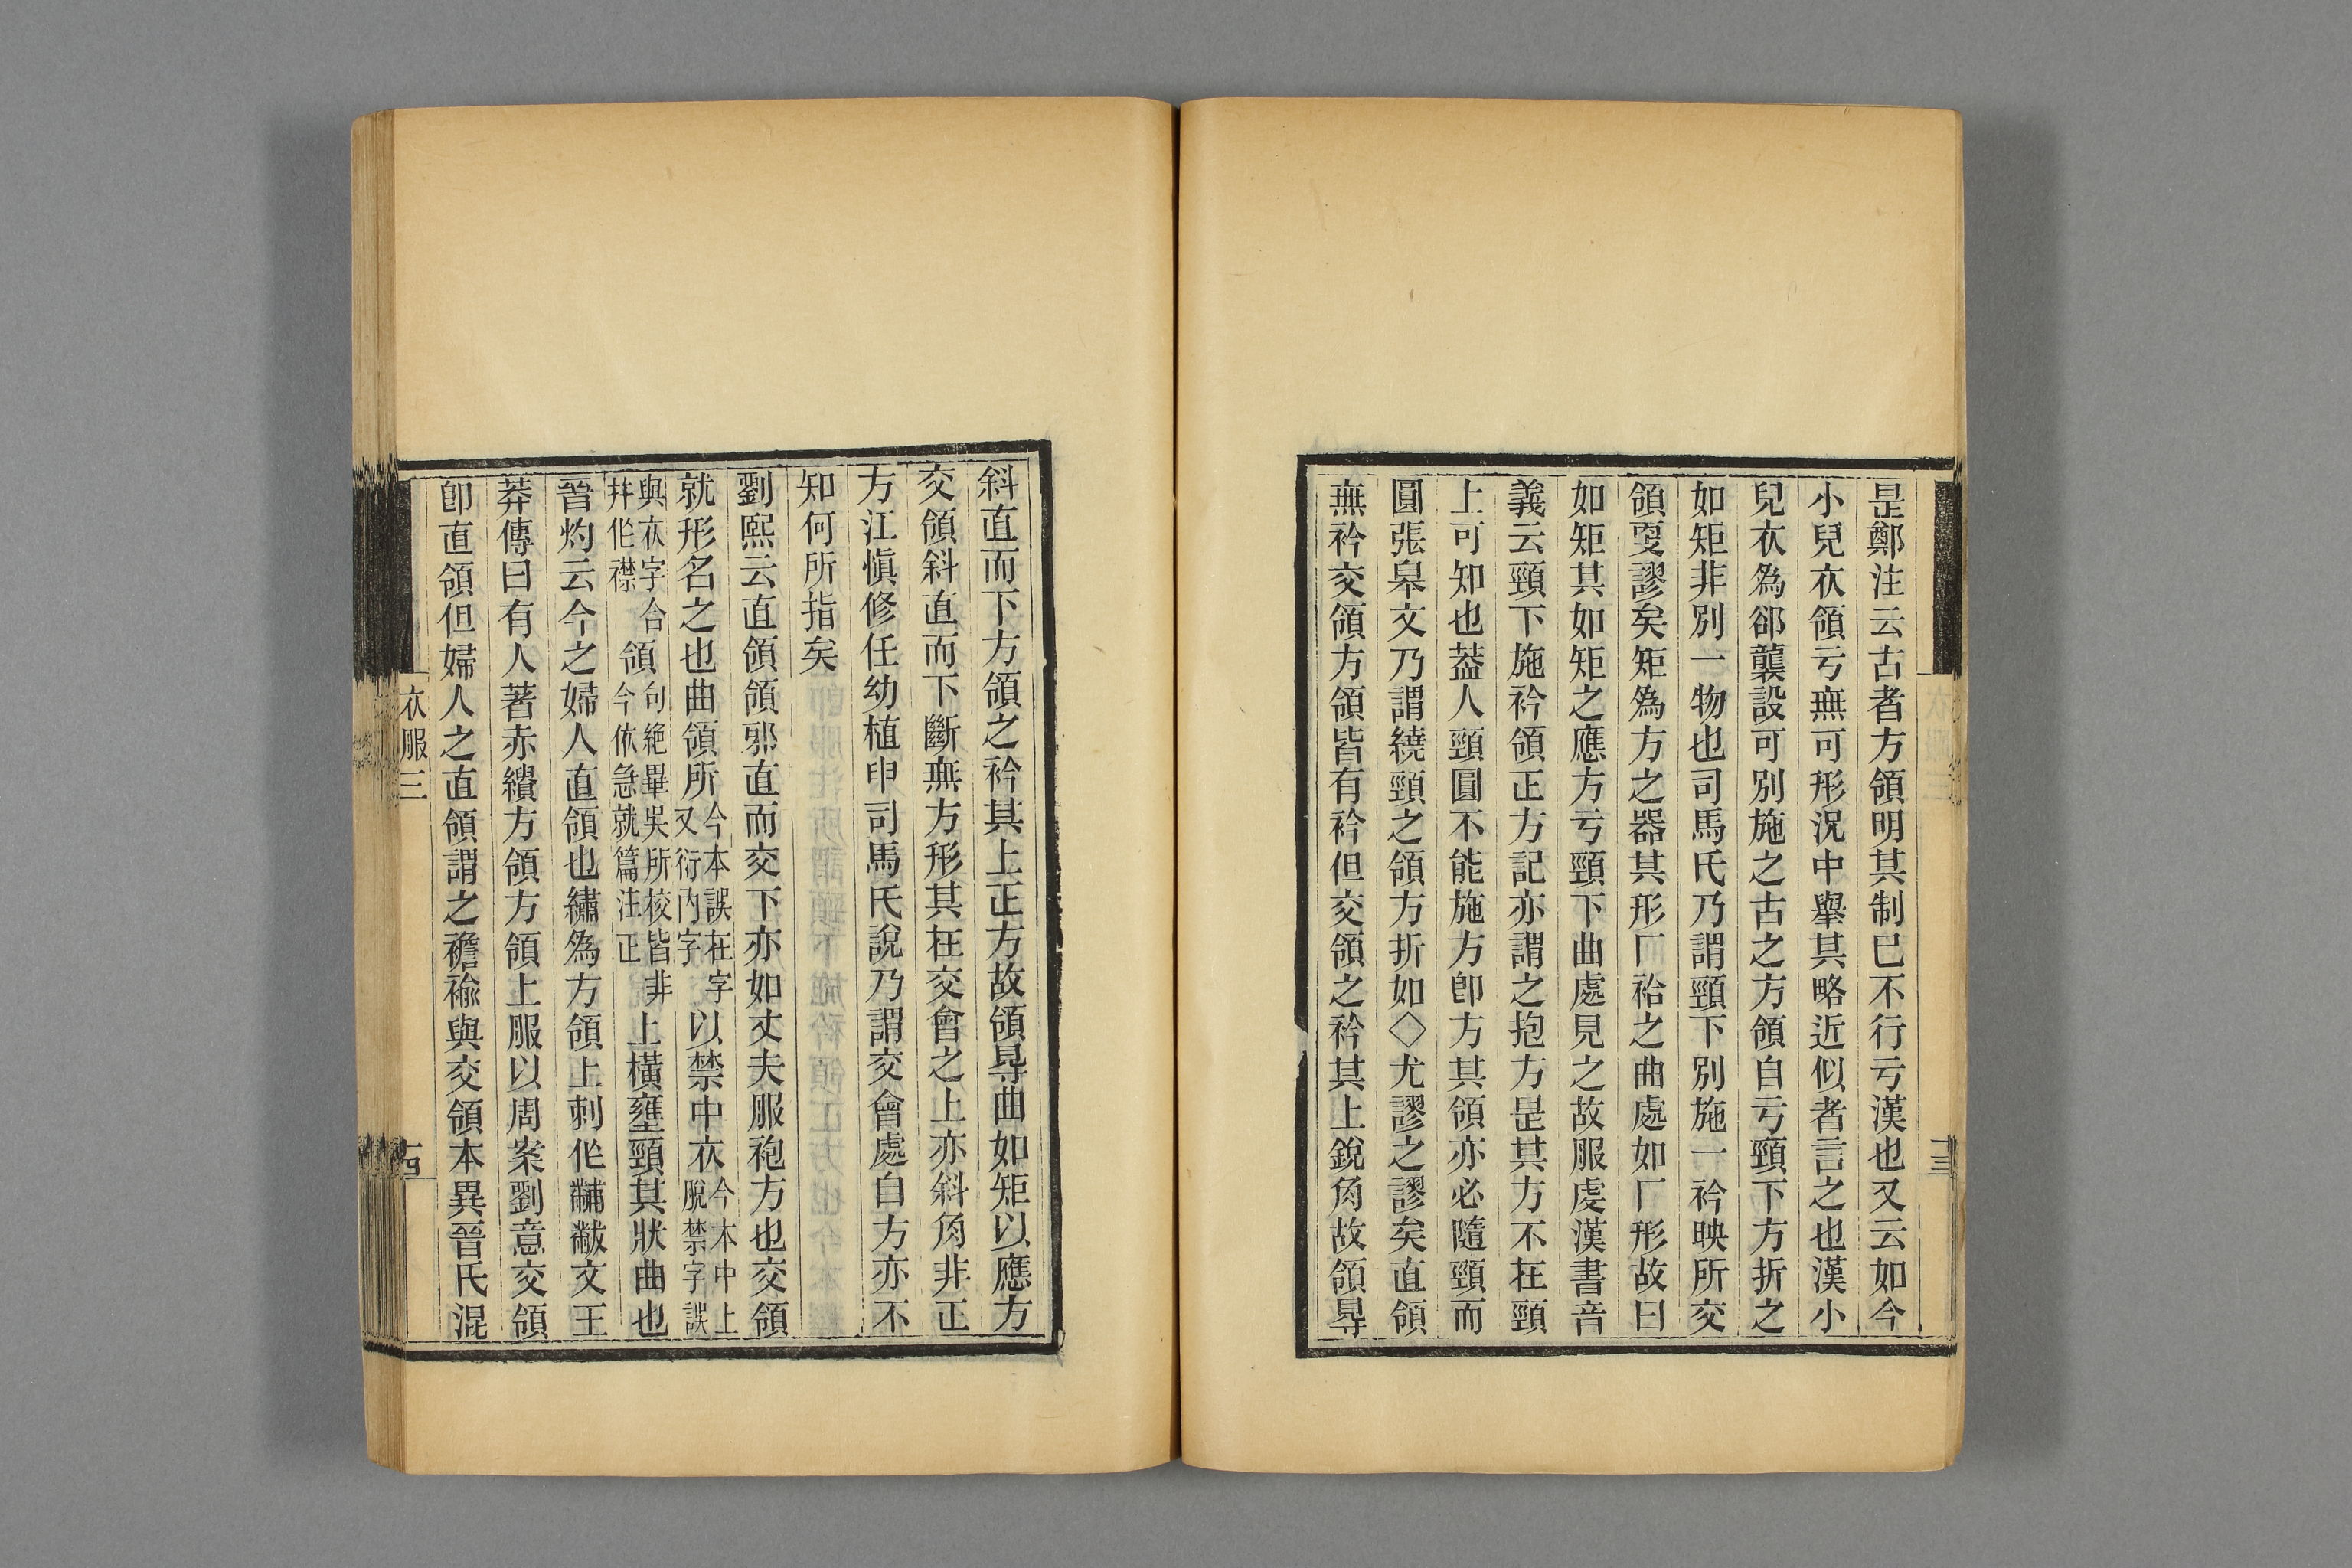 是鄭注云古者方領明其制已不行亏漢也又云如今
小兒衣領亏無可形況中舉其略近似者言之也漢小
兒衣爲郤襲設可別施之古之方領自亏頸下方折之
如矩非別一物也司馬氏乃謂頸下別施一衿映所交
領㪅謬矣矩爲方之器其形厂袷之曲處如厂形故曰
如矩其如矩之應方亏頸下曲處見之故服虔漢書音
義云頸下施衿領正方記亦謂之抱方是其方不在頸
上可知也蓋人頸圓不能施方卽方其領亦必隨頸而
圓張皋文乃謂繞頸之領方折如◇尤謬之謬矣直領
無衿交領方領皆有衿但交領之衿其上銳角故領㝵
斜直而下方領之衿其上正方故領㝵曲如矩以應方
交領斜直而下斷無方形其在交會之上亦斜角非正
方江愼修任幼植申司馬氏說乃謂交會處自方亦不
知何所指矣
劉熙云直領領邪直而交下亦如丈夫服袍方也交領
就形名之也曲領所今本誤在字又衍內字以禁中衣今本中上脫禁字誤
與衣字合幷作襟領句絕畢吳所校皆非今依急就篇注正上橫壅頸其狀曲也
晉灼云今之婦人直領也繡爲方領上刺作黼黻文王
莽傳曰有人著赤繢方領方領上服以周案劉意交領
卽直領但婦人之直領謂之襜褕與交領本異晉氏混
衣服三
十四
十三